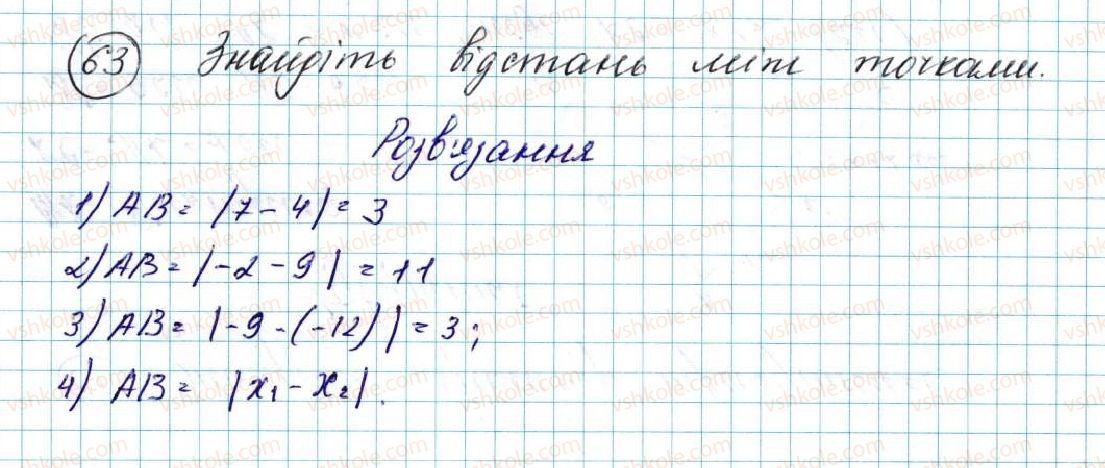 63 Знайдіть відстань між точками.
Розв'язання
1) AB = |7 - 4| = 3
2) AB = |-2 - 9| = 11
3) AB = |-9 - (-12)| = 3;
4) AB = |x₁ - x₂|.